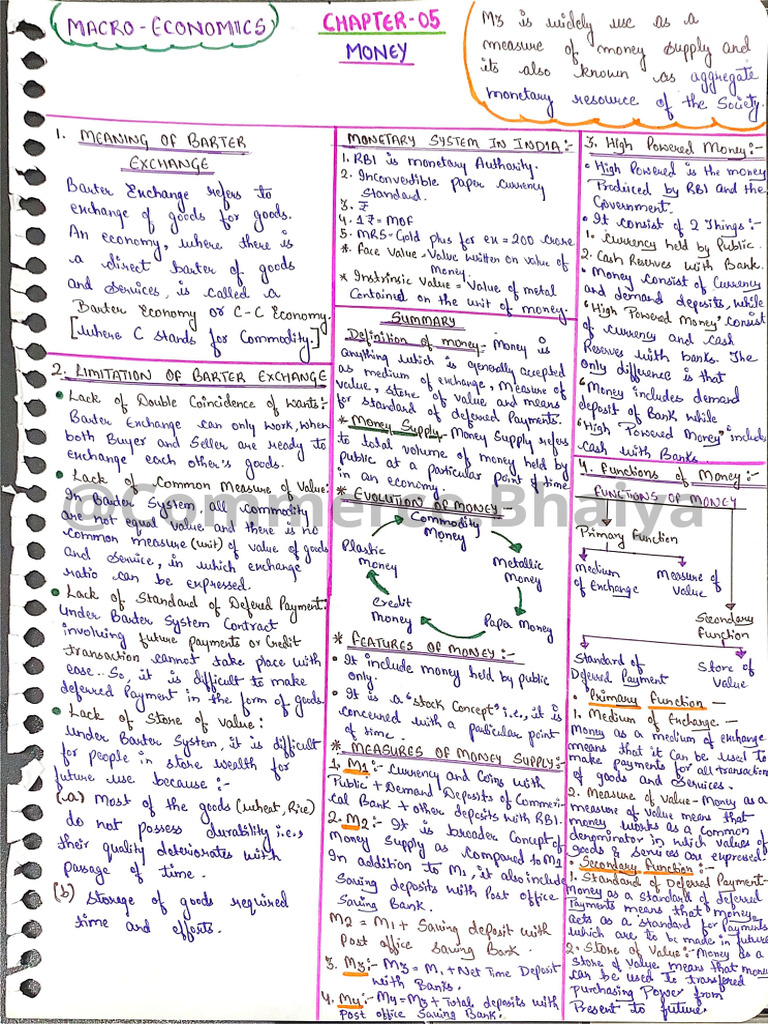 MACRO-ECONOMIICS
CHAPTER-05
MONEY
M3 is widely use as a
measure of money supply and
its also known as aggregate
monetary resource of the Society.
1. MEANING OF BARTER
EXCHANGE
Barter Exchange refers to
exchange of goods for goods.
An economy, where there is
a direct barter of goods
and services, is called a
Barter Economy or C-C Economy.
[where C stands for Commodity.]
2. LIMITATION OF BARTER EXCHANGE
• Lack of Double Coincidence of Wants:
Barter Exchange can only work, when
both Buyer and Seller are ready to
exchange each other's goods.
• Lack of Common Measure of Value:
In Barter System, all Commodity
are not equal value and there is no
common measure (unit) of value of goods
and service, in which exchange
ratio can be expressed.
• Lack of Standard of Defered Payment:
Under Barter System Contract
involving future payments or Credit
transaction cannot take place with
ease.. So, it is difficult to make
deferred Payment in the form of goods.
• Lack of Store of value:
under Barter System, it is difficult
for people in store wealth for
future use because :-
(a) Most of the goods (wheat, Rice)
do not possess durability i.e.,
their quality deteriorates with
passage of time.
(b) Storage of goods required
time and efforts.
MONETARY SYSTEM IN INDIA:-
1. RBI is monetary Authority.
2. Inconvertible paper currency
Standard.
3. ₹
4. 1₹ = MOF
5. MRS-Gold plus for ex = 200 crore
*. Face Value = Value written on value of
money.
* Instrinsic Value = Value of metal
Contained on the unit of money.
SUMMARY
Definition of money- Money is
anything which is generally accepted
as medium of exchange, Measure of
value, store of value and means
for standard of deferred Payments.
* Money Supply- Money Supply refers
to total volume of money held by
public at a particular point of time
in an economy.
* EVOLUTION OF MONEY-
Commodity
Money
Metallic
Money
Paper Money
Credit
Money
Plastic
Money
* FEATURES OF MONEY:-
• It include money held by public
only.
• It is a "stock Concept" i.e., it is
concerned with a particular point
of time.
* MEASURES OF MONEY SUPPLY:-
1. M1 :- Currency and Coins with
Public + Demand Deposits of Commeri-
cal Bank + other deposits with RBI.
2. M2 :- It is broader Concept of
Money Supply as Compared to M1
In addition to M1, it also include
Saving deposits with Post office
Saving Bank.
M2 = M1 + Saving deposit with
Post office saving Bank.
3. M3:- M3 = M1 + Net Time Deposit
with Banks.
4. M4:- M4 = M3 + Total deposits with
Post office Saving Bank.
3. High Powered Money:-
• High Powered is the money
Produced by RBI and the
Government.
• It consist of 2 Things :-
1. Currency held by Public.
2. Cash Reserves with Bank.
• Money consist of Currency
and demand deposits, while
"High Powered Money" consist
of currency and cash
Reserves with banks. The
only difference is that
"Money includes demand
deposit of Bank while
"High Powered Money" include
cash with Banks
4. Functions of Money :-
FUNCTIONS OF MONEY
Primary Function
Medium
of Exchange
Measure of
Value
Secondary
Function
Standard of
Deferred Payment
Store of
Value
• Primary Function -
1. Medium of Exchange -
Money as a medium of exchange
means that it can be used to
make payments for all transaction
of goods and services.
2. Measure of value- Money as a
measure of value means that
money works as a common
denominator in which values of
goods & services are expressed.
• Secondary Function :-
1. Standard of Deferred Payment-
Money as a standard of deferred
Payments means that money
acts as a standard for Payments
which are to be made in future
2. Store of Value:- Money as a
store of value means that money
can be used to transfered
purchasing Power from
Present to future.
@Commerce.Bhaiya